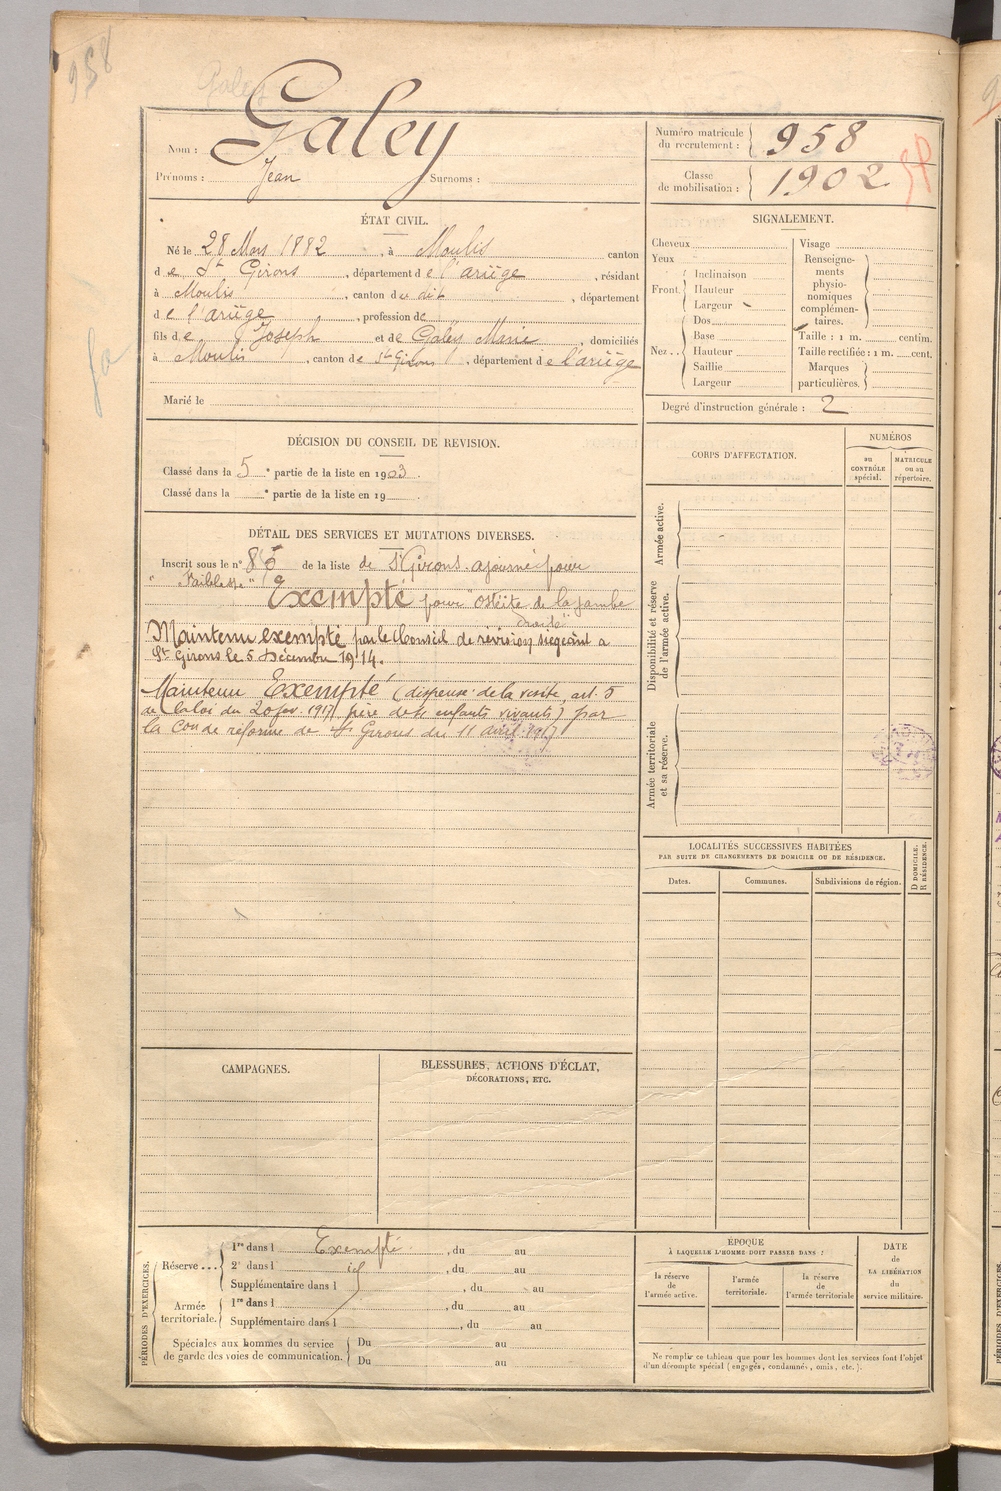 958
Galey
Nom : Galey
Prénoms : Jean Surnoms :
Numéro matricule du recrutement : 958
Classe de mobilisation : 1902
ÉTAT CIVIL.
Né le 28 Mars 1882, à Moulis canton
de St Girons, département de l'ariège, résidant
à Moulis, canton du dit, département
de l'ariège, profession de
fils de Joseph et de Galey Marie, domiciliés
à Moulis, canton de St Girons, département de l'ariège
Marié le
SIGNALEMENT.
Cheveux
Yeux
Front. Inclinaison
Hauteur
Largeur
Nez.. Dos
Base
Hauteur
Saillie
Largeur
Visage
Renseigne-
ments
physio-
nomiques
complémen-
taires.
Taille : 1 m. centim.
Taille rectifiée : 1 m. cent.
Marques
particulières.
Degré d'instruction générale : 2
DÉCISION DU CONSEIL DE REVISION.
Classé dans la 5e partie de la liste en 1903.
Classé dans la e partie de la liste en 19
DÉTAIL DES SERVICES ET MUTATIONS DIVERSES.
Inscrit sous le n° de la liste de St Girons. ajourné pour
" Faiblesse "
Exempté pour "ostéite de la jambe
droite"
Maintenu exempté par le Conseil de révision siégeant à
St Girons le 5 Décembre 1914.
Maintenu Exempté (dispensé de la visite, art. 5
de la loi du 20 fév. 1917, père de 4 enfants vivants) par
la Con de réforme de St Girons du 11 avril 1917
CORPS D'AFFECTATION.
NUMÉROS
au
CONTRÔLE
spécial.
MATRICULE
ou au
répertoire.
Armée active.
Disponibilité et réserve
de l'armée active.
Armée territoriale
et sa réserve.
LOCALITÉS SUCCESSIVES HABITÉES
PAR SUITE DE CHANGEMENTS DE DOMICILE OU DE RÉSIDENCE.
Dates.
Communes.
Subdivisions de région.
D DOMICILE.
R RÉSIDENCE.
CAMPAGNES.
BLESSURES, ACTIONS D'ÉCLAT,
DÉCORATIONS, ETC.
PÉRIODES D'EXERCICES.
Réserve ... 1re dans l Exempté, du au
2e dans l id, du au
Supplémentaire dans l, du au
Armée
territoriale. 1re dans l, du au
Supplémentaire dans l, du au
Spéciales aux hommes du service
de garde des voies de communication. Du au
Du au
ÉPOQUE
À LAQUELLE L'HOMME DOIT PASSER DANS :
la réserve
de
l'armée active.
l'armée
territoriale.
la réserve
de
l'armée territoriale
DATE
de
LA LIBÉRATION
du
service militaire.
Ne remplir ce tableau que pour les hommes dont les services font l'objet
d'un décompte spécial (engagés, condamnés, omis, etc.).